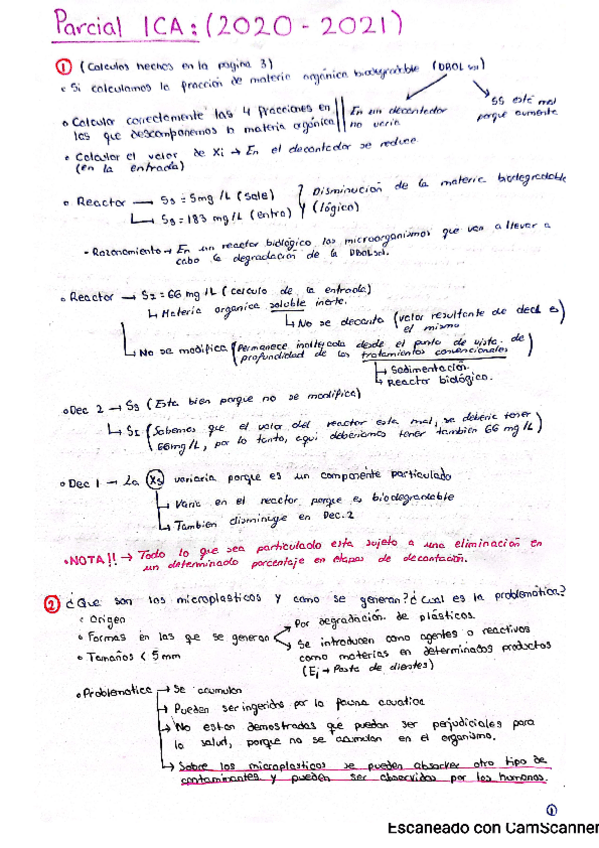 Parcial ICA: (2020 - 2021)
① (Calculos hechos en la pagina 3)
• Si calculamos la fracción de materia orgánica biodegradable (DBOL sol)
• Calcular correctamente las 4 fracciones en los que descomponemos la materia orgánica
En un decantador no varia
SS está mal porque aumenta
• Calcular el valor de Xi → En el decantador se reduce
(en la entrada)
• Reactor → Ss = 5mg /L (sale)
↳ Ss = 183 mg/L (entra)
Disminución de la materia biodegradable y (lógico)
- Razonamiento → En un reactor biológico los microorganismos que van a llevar a cabo la degradación de la DBOLsol.
• Reactor → SI = 66 mg/L (calculo de la entrada)
↳ Materia organica soluble inerte.
↳ No se decanta (valor resultante de dec1 es el mismo)
↳ No se modifica (Permanece inalterada desde el punto de vista de profundidad de los tratamientos convencionales)
↳ Sedimentación.
↳ Reactor biológico.
• Dec 2 → Ss (Esta bien porque no se modifica)
↳ SI (Sabemos que el valor del reactor esta mal, se deberia tener 66mg/L, por lo tanto, aqui deberiamos tener tambien 66 mg/L)
• Dec 1 → La Xs variaria porque es un componente particulado
↳ Varia en el reactor porque es biodegradable
↳ Tambien disminuye en Dec.2
• NOTA!! → Todo lo que sea particulado esta sujeto a una eliminación en un determinado porcentaje en etapas de decantación.
② ¿Que son los microplasticos y como se generan? ¿Cual es la problemática?
• Origen
• Formas en las que se generan
Por degradación de plásticos.
Se introducen como agentes o reactivos como materias en determinados productos (Ej → Pasta de dientes)
• Tamaños < 5mm
• Problematica → Se acumulan
↳ Pueden ser ingeridos por la fauna acuatica
↳ No estan demostradas que puedan ser perjudiciales para la salud, porque no se acumulan en el organismo.
↳ Sobre los microplasticos se pueden absorver otro tipo de contaminantes y pueden ser absorvidos por los humanos.
①
Escaneado con CamScanner